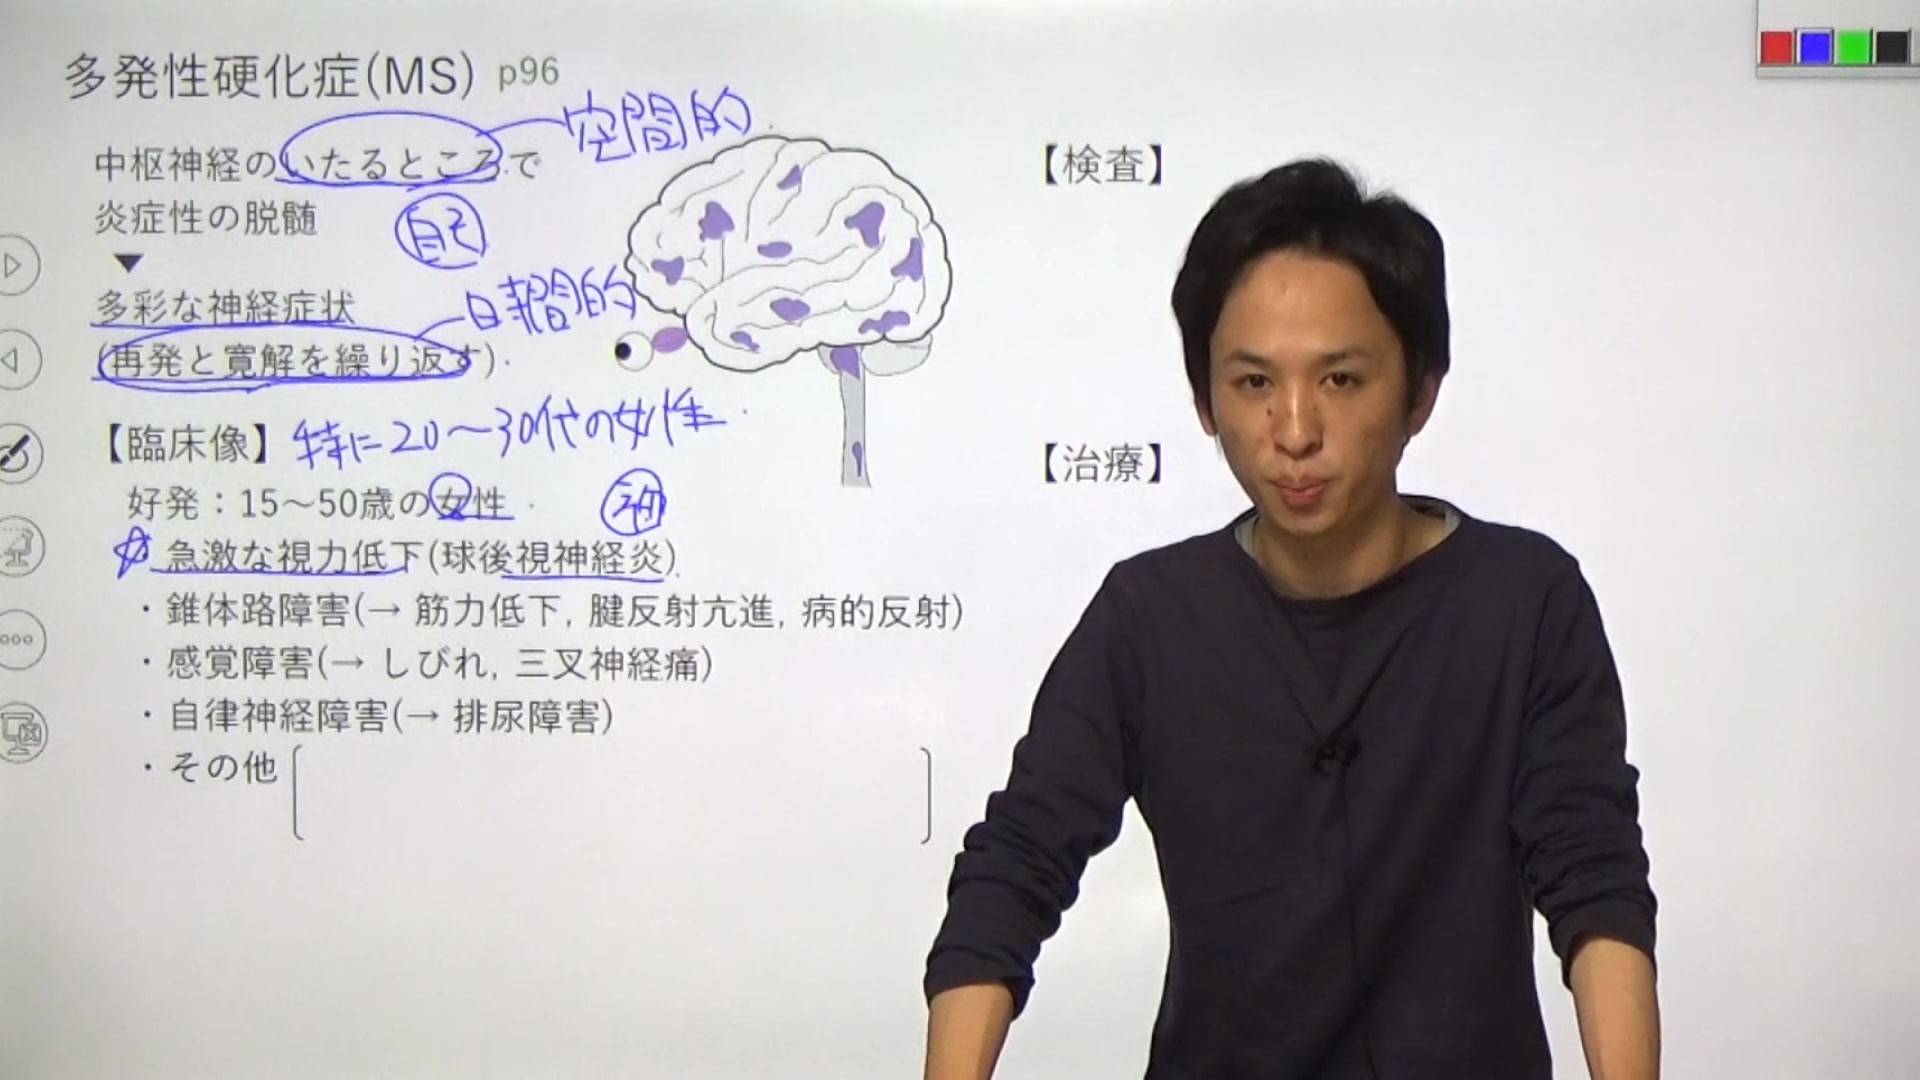 多発性硬化症(MS) p96
空間的
中枢神経のいたるところで
炎症性の脱髄
自己
▼
多彩な神経症状
時間的
(再発と寛解を繰り返す).
【臨床像】 特に20～30代の女性
好発：15～50歳の女性
急激な視力低下(球後視神経炎)
・錐体路障害(→ 筋力低下, 腱反射亢進, 病的反射)
・感覚障害(→ しびれ, 三叉神経痛)
・自律神経障害(→ 排尿障害)
・その他
【検査】
【治療】